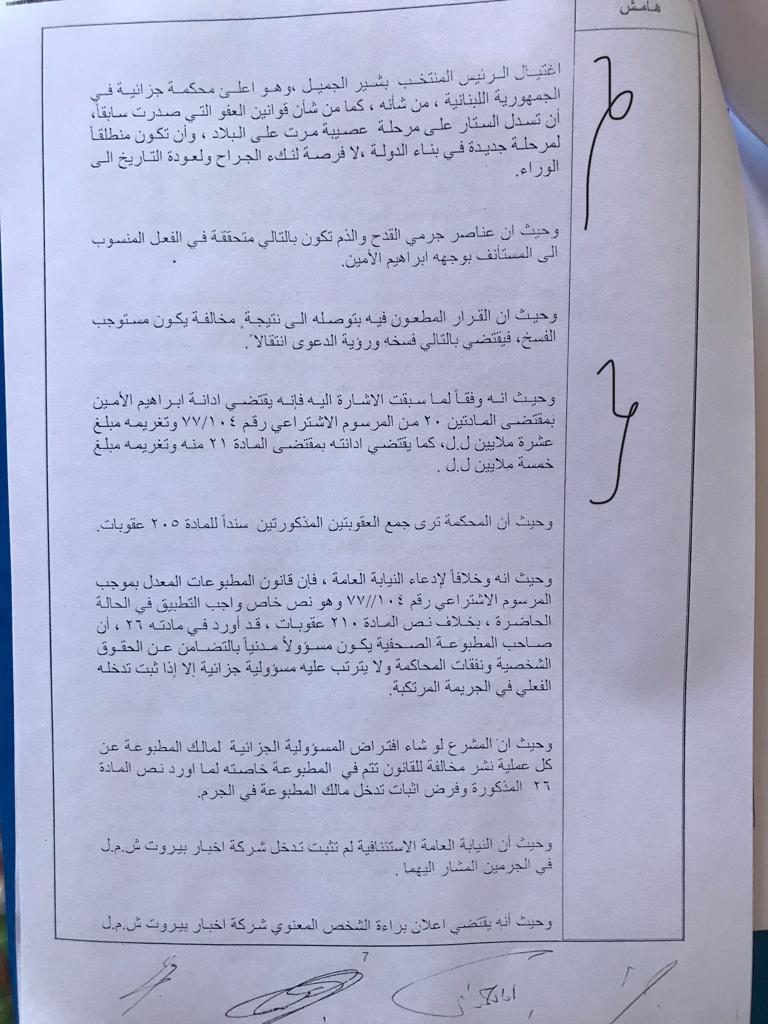 هامش
اغتيال الرئيس المنتخب بشير الجميل ،وهو اعلى محكمة جزائية في
الجمهورية اللبنانية ، من شأنه ، كما من شأن قوانين العفو التي صدرت سابقاً،
أن تسدل الستار على مرحلة عصيبة مرت على البلاد ، وأن تكون منطلقاً
لمرحلة جديدة في بناء الدولة ،لا فرصة لنكء الجراح ولعودة التاريخ الى
الوراء.
وحيث ان عناصر جرمي القدح والذم تكون بالتالي متحققة في الفعل المنسوب
الى المستأنف بوجهه ابراهيم الأمين.
وحيث ان القرار المطعون فيه بتوصله الى نتيجة مخالفة يكون مستوجب
الفسخ، فيقتضي بالتالي فسخه ورؤية الدعوى انتقالاً .
وحيث انه وفقاً لما سبقت الاشارة اليه فإنه يقتضي ادانة ابراهيم الأمين
بمقتضى المادتين ٢٠ من المرسوم الاشتراعي رقم ٧٧/١٠٤ وتغريمه مبلغ
عشرة ملايين ل.ل، كما يقتضي ادانته بمقتضى المادة ٢١ منه وتغريمه مبلغ
خمسة ملايين ل.ل .
وحيث أن المحكمة ترى جمع العقوبتين المذكورتين سنداً للمادة ٢٠٥ عقوبات.
وحيث انه وخلافاً لإدعاء النيابة العامة ، فان قانون المطبوعات المعدل بموجب
المرسوم الاشتراعي رقم ٧٧//١٠٤ وهو نص خاص واجب التطبيق في الحالة
الحاضرة ، بخلاف نص المادة ٢١٠ عقوبات ، قد أورد في مادته ٢٦ ، أن
صاحب المطبوعة الصحفية يكون مسؤولاً مدنياً بالتضامن عن الحقوق
الشخصية ونفقات المحاكمة ولا يترتب عليه مسؤولية جزائية إلا إذا ثبت تدخله
الفعلي في الجريمة المرتكبة.
وحيث ان المشرع لو شاء افتراض المسؤولية الجزائية لمالك المطبوعة عن
كل عملية نشر مخالفة للقانون تتم في المطبوعة خاصته لما اورد نص المادة
٢٦ المذكورة وفرض اثبات تدخل مالك المطبوعة في الجرم.
وحيث أن النيابة العامة الاستئنافية لم تثبت تدخل شركة اخبار بيروت ش.م.ل
في الجرمين المشار اليهما .
وحيث أنه يقتضي اعلان براءة الشخص المعنوي شركة اخبار بيروت ش.م.ل
7